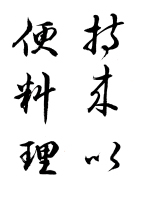 持来以
便料理